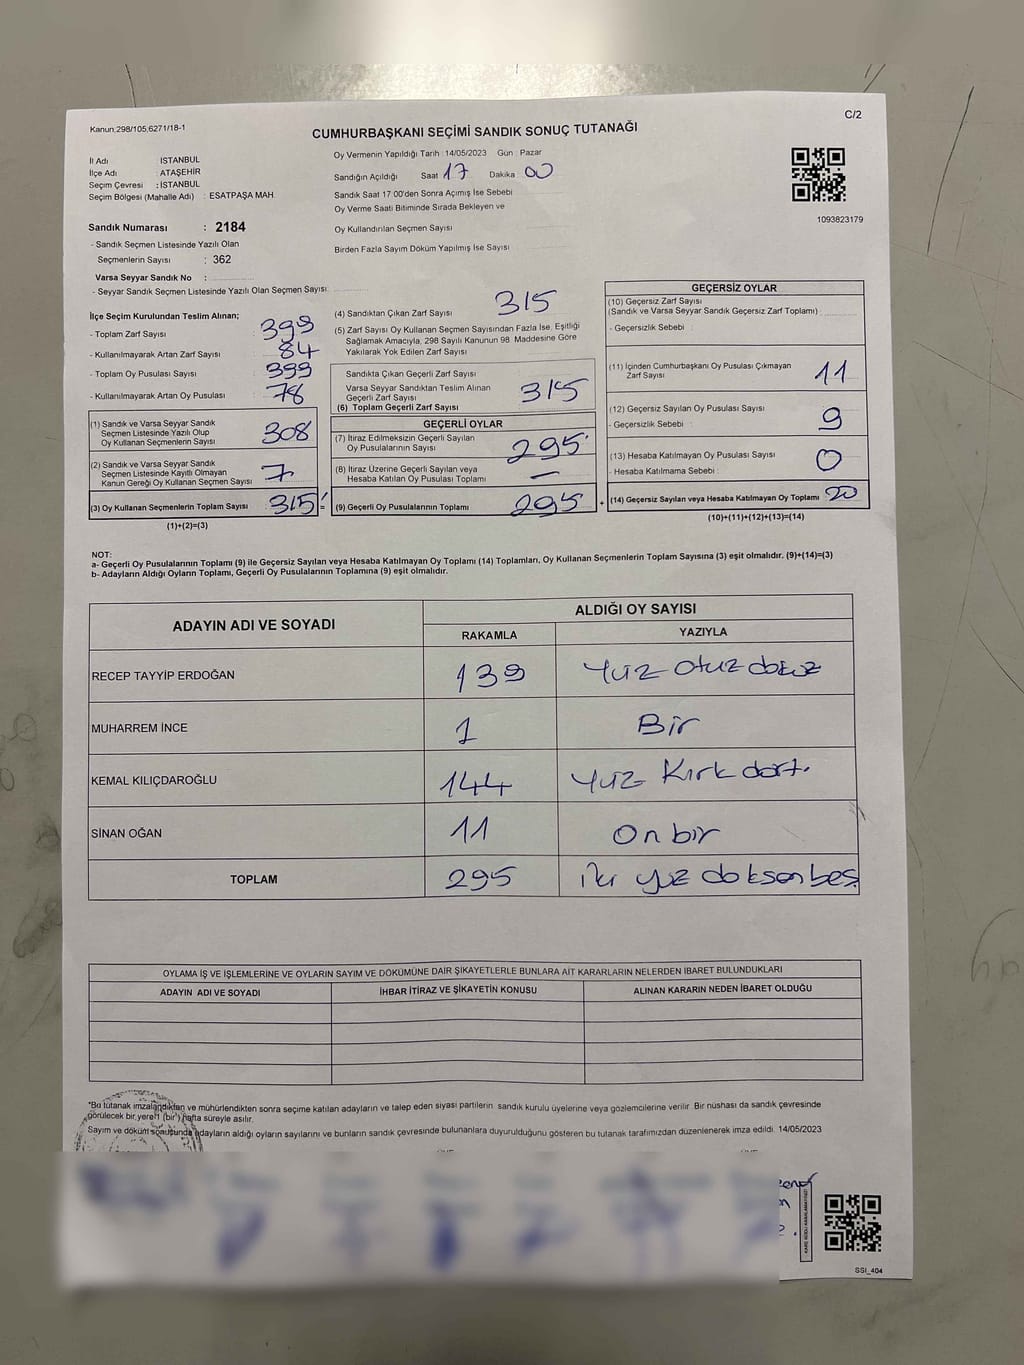 Kanun:298/105;6271/18-1
C/2
CUMHURBAŞKANI SEÇİMİ SANDIK SONUÇ TUTANAĞI
İl Adı : İSTANBUL
İlçe Adı : ATAŞEHİR
Seçim Çevresi : İSTANBUL
Seçim Bölgesi (Mahalle Adı) : ESATPAŞA MAH.
Sandık Numarası : 2184
- Sandık Seçmen Listesinde Yazılı Olan
Seçmenlerin Sayısı : 362
Varsa Seyyar Sandık No :
- Seyyar Sandık Seçmen Listesinde Yazılı Olan Seçmen Sayısı:
Oy Vermenin Yapıldığı Tarih : 14/05/2023 Gün : Pazar
Sandığın Açıldığı Saat 17 Dakika 00
Sandık Saat 17.00'den Sonra Açımış İse Sebebi
Oy Verme Saati Bitiminde Sırada Bekleyen ve
Oy Kullandırılan Seçmen Sayısı
Birden Fazla Sayım Döküm Yapılmış İse Sayısı
1093823179
İlçe Seçim Kurulundan Teslim Alınan;
- Toplam Zarf Sayısı : 399
- Kullanılmayarak Artan Zarf Sayısı : 84
- Toplam Oy Pusulası Sayısı : 399
- Kullanılmayarak Artan Oy Pusulası : 78
(1) Sandık ve Varsa Seyyar Sandık
Seçmen Listesinde Yazılı Olup
Oy Kullanan Seçmenlerin Sayısı 308
(2) Sandık ve Varsa Seyyar Sandık
Seçmen Listesinde Kayıtlı Olmayan
Kanun Gereği Oy Kullanan Seçmen Sayısı 7
(3) Oy Kullanan Seçmenlerin Toplam Sayısı 315 =
(1)+(2)=(3)
(4) Sandıktan Çıkan Zarf Sayısı 315
(5) Zarf Sayısı Oy Kullanan Seçmen Sayısından Fazla İse, Eşitliği
Sağlamak Amacıyla, 298 Sayılı Kanunun 98. Maddesine Göre
Yakılarak Yok Edilen Zarf Sayısı
Sandıkta Çıkan Geçerli Zarf Sayısı
Varsa Seyyar Sandıktan Teslim Alınan
Geçerli Zarf Sayısı
(6) Toplam Geçerli Zarf Sayısı 315
GEÇERLİ OYLAR
(7) İtiraz Edilmeksizin Geçerli Sayılan
Oy Pusulalarının Sayısı 295
(8) İtiraz Üzerine Geçerli Sayılan veya
Hesaba Katılan Oy Pusulası Toplamı —
(9) Geçerli Oy Pusulalarının Toplamı 295 +
GEÇERSİZ OYLAR
(10) Geçersiz Zarf Sayısı
(Sandık ve Varsa Seyyar Sandık Geçersiz Zarf Toplamı) :
- Geçersizlik Sebebi :
(11) İçinden Cumhurbaşkanı Oy Pusulası Çıkmayan
Zarf Sayısı 11
(12) Geçersiz Sayılan Oy Pusulası Sayısı 9
- Geçersizlik Sebebi :
(13) Hesaba Katılmayan Oy Pusulası Sayısı 0
- Hesaba Katılmama Sebebi :
(14) Geçersiz Sayılan veya Hesaba Katılmayan Oy Toplamı 20
(10)+(11)+(12)+(13)=(14)
NOT:
a- Geçerli Oy Pusulalarının Toplamı (9) ile Geçersiz Sayılan veya Hesaba Katılmayan Oy Toplamı (14) Toplamları, Oy Kullanan Seçmenlerin Toplam Sayısına (3) eşit olmalıdır. (9)+(14)=(3)
b- Adayların Aldığı Oyların Toplamı, Geçerli Oy Pusulalarının Toplamına (9) eşit olmalıdır.
ADAYIN ADI VE SOYADI
ALDIĞI OY SAYISI
RAKAMLA YAZIYLA
RECEP TAYYİP ERDOĞAN 139 Yüz Otuz dokuz
MUHARREM İNCE 1 Bir
KEMAL KILIÇDAROĞLU 144 Yüz Kırk dört.
SİNAN OĞAN 11 On bir
TOPLAM 295 iki yüz doksan beş
OYLAMA İŞ VE İŞLEMLERİNE VE OYLARIN SAYIM VE DÖKÜMÜNE DAİR ŞİKAYETLERLE BUNLARA AİT KARARLARIN NELERDEN İBARET BULUNDUKLARI
ADAYIN ADI VE SOYADI İHBAR İTİRAZ VE ŞİKAYETİN KONUSU ALINAN KARARIN NEDEN İBARET OLDUĞU
"Bu tutanak imzalandıktan ve mühürlendikten sonra seçime katılan adayların ve talep eden siyasi partilerin sandık kurulu üyelerine veya gözlemcilerine verilir. Bir nüshası da sandık çevresinde
görülecek bir yere 1 (bir) hafta süreyle asılır.
Sayım ve döküm sonucunda adayların aldığı oyların sayılarını ve bunların sandık çevresinde bulunanlara duyurulduğunu gösteren bu tutanak tarafımızdan düzenlenerek imza edildi. 14/05/2023
SSI_404